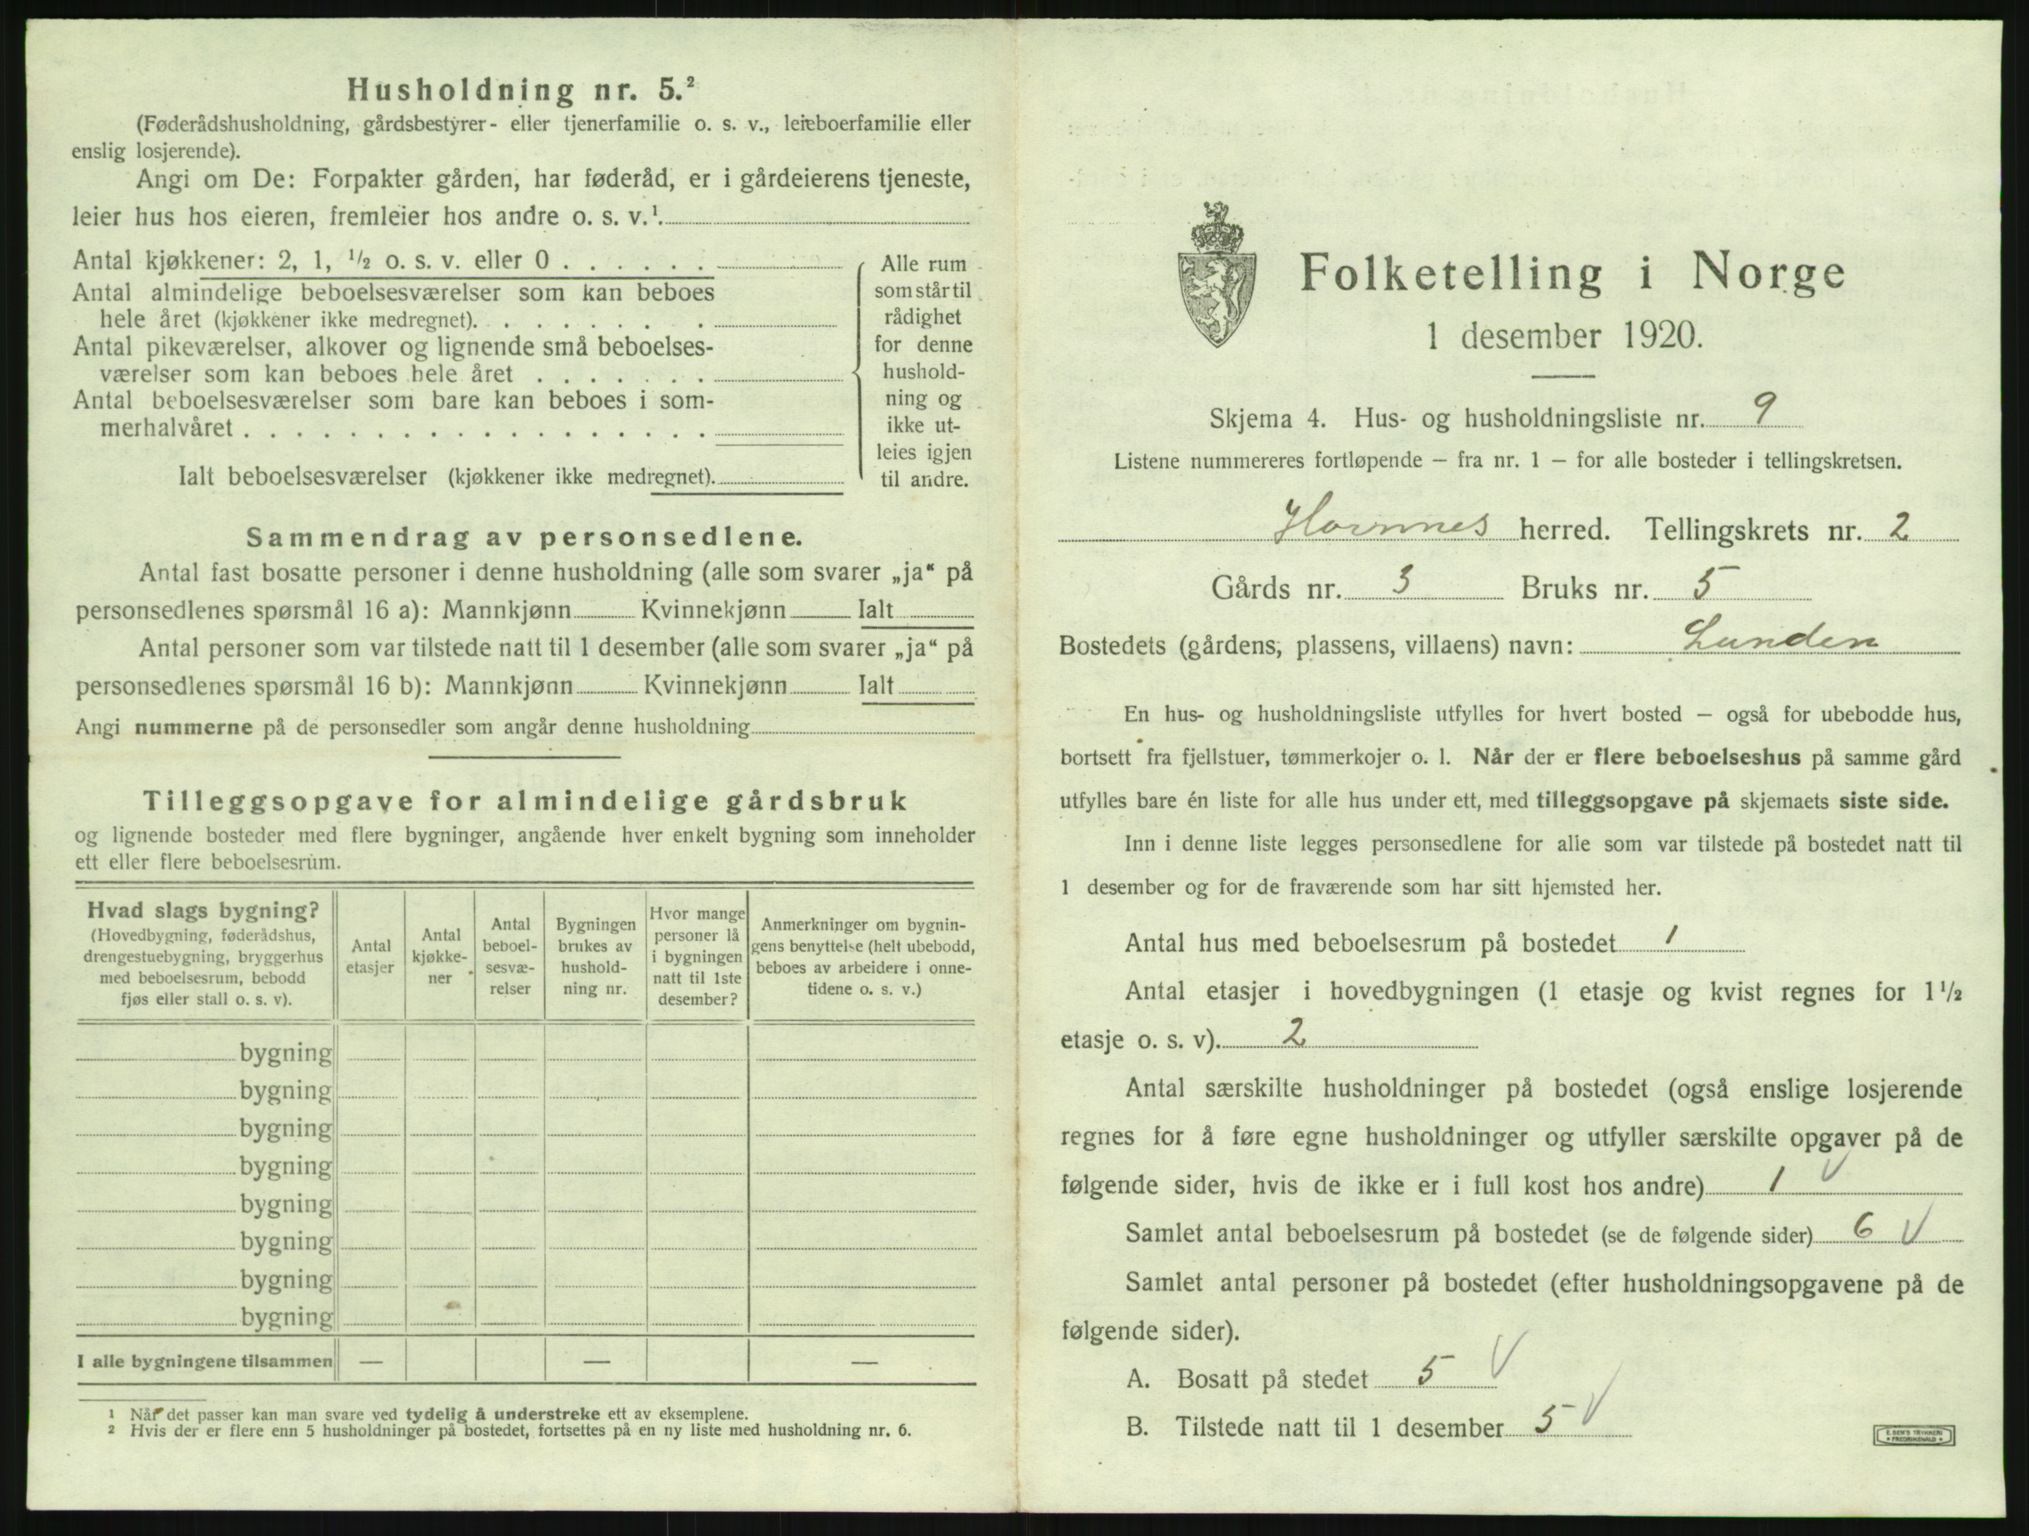 Husholdning nr. 5.²
(Føderådshusholdning, gårdsbestyrer- eller tjenerfamilie o. s. v., leieboerfamilie eller
enslig losjerende).
Angi om De: Forpakter gården, har føderåd, er i gårdeierens tjeneste,
leier hus hos eieren, fremleier hos andre o. s. v.¹
Antal kjøkkener: 2, 1, ½ o. s. v. eller 0 . . . . . .
Antal almindelige beboelsesværelser som kan beboes
hele året (kjøkkener ikke medregnet). . . . . . . . .
Antal pikeværelser, alkover og lignende små beboelses-
værelser som kan beboes hele året . . . . . . .
Antal beboelsesværelser som bare kan beboes i som-
merhalvåret . . . . . . . . . . . . . . . . . .
Ialt beboelsesværelser (kjøkkener ikke medregnet).
Alle rum
som står til
rådighet
for denne
hushold-
ning og
ikke ut-
leies igjen
til andre.
Sammendrag av personsedlene.
Antal fast bosatte personer i denne husholdning (alle som svarer „ja“ på
personsedlenes spørsmål 16 a): Mannkjønn Kvinnekjønn Ialt
Antal personer som var tilstede natt til 1 desember (alle som svarer „ja“ på
personsedlenes spørsmål 16 b): Mannkjønn Kvinnekjønn Ialt
Angi nummerne på de personsedler som angår denne husholdning
Tilleggsopgave for almindelige gårdsbruk
og lignende bosteder med flere bygninger, angående hver enkelt bygning som inneholder
ett eller flere beboelsesrum.
Hvad slags bygning?
(Hovedbygning, føderådshus,
drengestuebygning, bryggerhus
med beboelsesrum, bebodd
fjøs eller stall o. s. v).
Antal
etasjer
Antal
kjøkke-
ner
Antal
beboel-
sesvæ-
relser
Bygningen
brukes av
hushold-
ning nr.
Hvor mange
personer lå
i bygningen
natt til 1ste
desember?
Anmerkninger om bygnin-
gens benyttelse (helt ubebodd,
beboes av arbeidere i onne-
tidene o. s. v.)
bygning
bygning
bygning
bygning
bygning
bygning
bygning
bygning
I alle bygningene tilsammen — — —
1 Når det passer kan man svare ved tydelig å understreke ett av eksemplene.
2 Hvis der er flere enn 5 husholdninger på bostedet, fortsettes på en ny liste med husholdning nr. 6.
Folketelling i Norge
1 desember 1920.
Skjema 4. Hus- og husholdningsliste nr. 9
Listene nummereres fortløpende – fra nr. 1 – for alle bosteder i tellingskretsen.
Hornnes herred. Tellingskrets nr. 2
Gårds nr. 3 Bruks nr. 5
Bostedets (gårdens, plassens, villaens) navn: Lunden
En hus- og husholdningsliste utfylles for hvert bosted – også for ubebodde hus,
bortsett fra fjellstuer, tømmerkojer o. l. Når der er flere beboelseshus på samme gård
utfylles bare én liste for alle hus under ett, med tilleggsopgave på skjemaets siste side.
Inn i denne liste legges personsedlene for alle som var tilstede på bostedet natt til
1 desember og for de fraværende som har sitt hjemsted her.
Antal hus med beboelsesrum på bostedet 1
Antal etasjer i hovedbygningen (1 etasje og kvist regnes for 1½
etasje o. s. v). 2
Antal særskilte husholdninger på bostedet (også enslige losjerende
regnes for å føre egne husholdninger og utfyller særskilte opgaver på de
følgende sider, hvis de ikke er i full kost hos andre) 1
Samlet antal beboelsesrum på bostedet (se de følgende sider) 6
Samlet antal personer på bostedet (efter husholdningsopgavene på de
følgende sider).
A. Bosatt på stedet 5
B. Tilstede natt til 1 desember 5